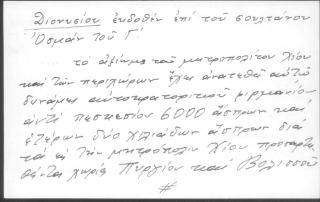 Διονυσίου ἐκδοθέν ἐπί τοῦ σουλτάνου
Ὀσμάν τοῦ Γ'
... τό ἀξίωμα τοῦ μητροπολίτου Χίου
καί τῶν περιχώρων ἔχει ἀνατεθῆ αὐτῷ
δυνάμει αὐτοκρατορικοῦ φιρμανίου
ἀντί πεσκεσίου 6000 ἄσπρων καί
ἑτέρων δύο χιλιάδων ἄσπρων διά
τά εἰς τήν μητρόπολιν Χίου προσαρτη-
θέντα χωρία Πυργίον καί Βολισσοῦ
#